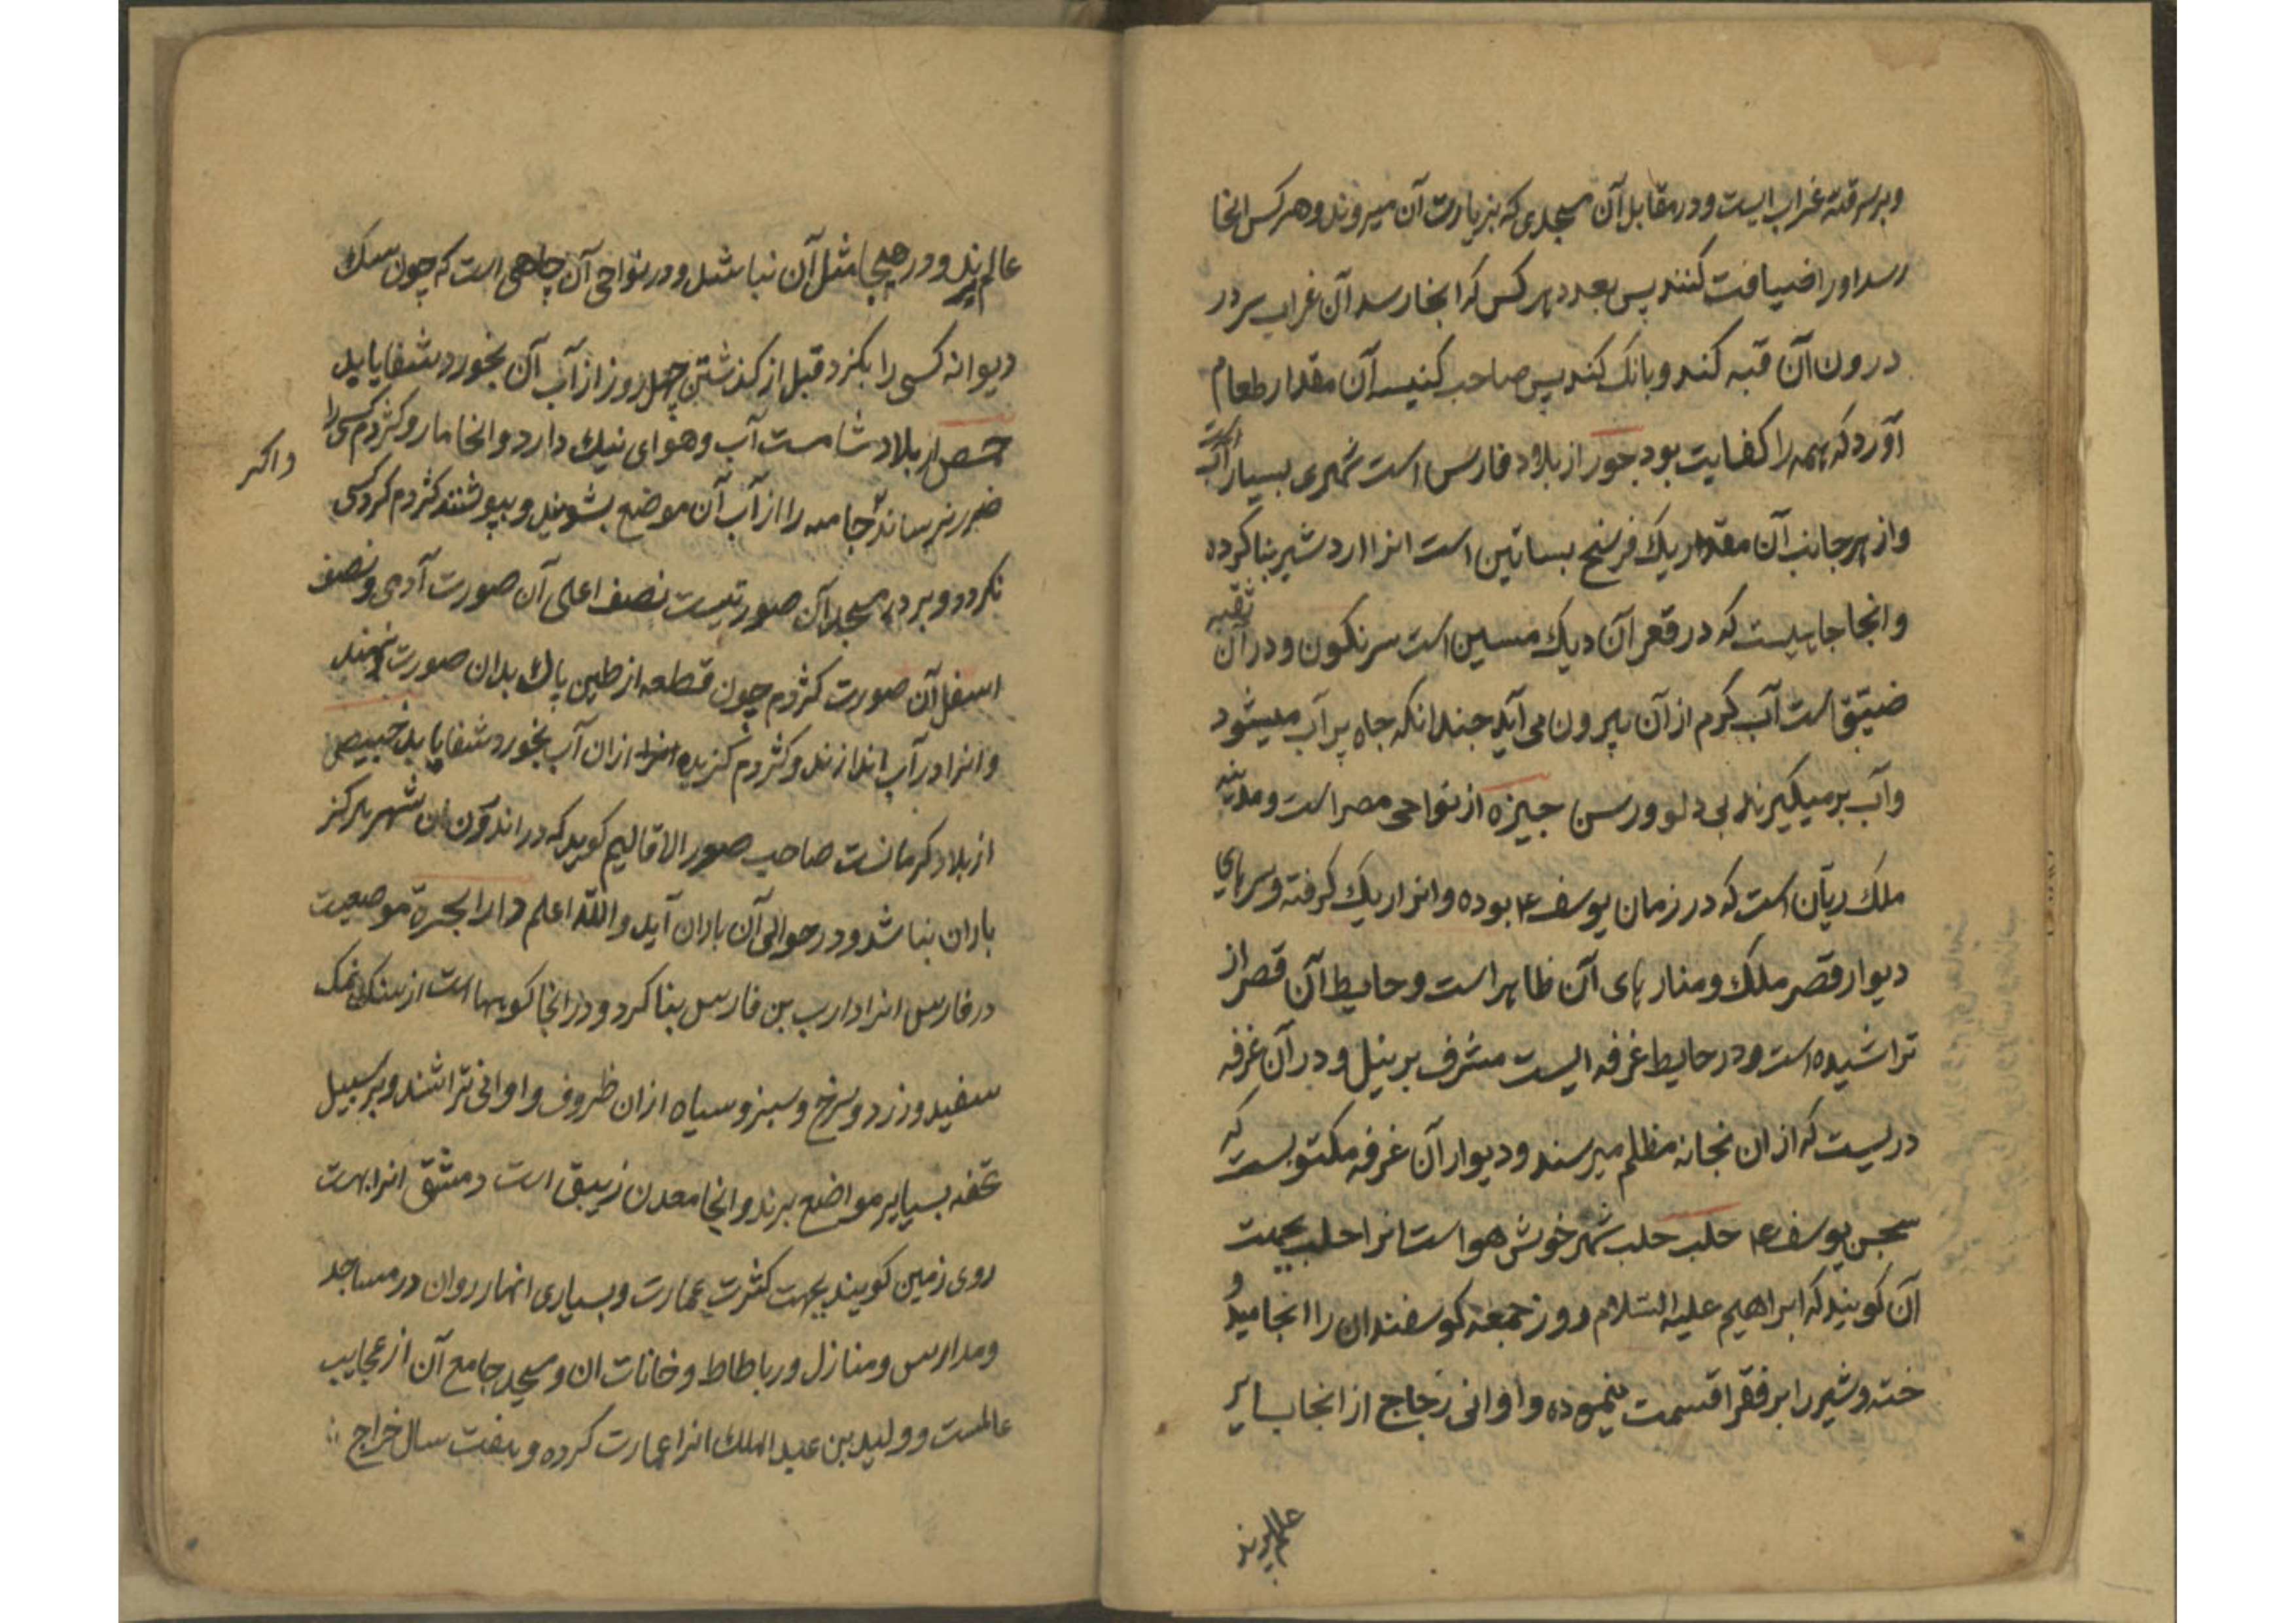 وبرسر قبه غرابیست ودر مقابل آن مسجدی که بزیارت آن میروند وهرکس انجا
رسد اورا ضیافت کنند پس بعدد هرکس که انجا رسد آن غراب سر در
درون آن قبه کند وبانک کند پس صاحب کنیسه آن مقدار طعام
آورد که همه را کفایت بود جور از بلاد فارس است شهری بسیار آب است
واز هر جانب آن مقدار یک فرسخ بساتین است انرا اردشیر بنا کرده
وانجا چاهیست که در قعر آن دیک مسین است سرنکون ودر آن ثقبه
ضیّق است آب کرم از آن بیرون می آید چندانکه چاه پر آب میشود
وآب برمیکیرند بی دلو ورسن جیزه از نواحی مصر است ومدینه
ملک ریّان است که در زمان یوسف ع بوده وانرا ریک کرفته وسرهای
دیوار قصر ملک ومنارهای آن ظاهر است وحایط آن قصر از
تراشیده است ودر حایط غرفه ایست مشرف بر نیل ودر آن غرفه
دریست که از ان بخانه مظلم میرسند ودیوار آن غرفه مکتوبست که
سجن یوسف ع حلب حلب شهر خوش هواست انرا حلب بجهت
آن کویند که ابراهیم علیه السّلام روز جمعه کوسفندان را انجا میدو
خته وشیر را بر فقرا قسمت مینموده واوانی زجاج از انجا بسایر
عالم برند
عالم برند ودر هیچ جا مثل آن نباشد ودر نواحی آن چاهی است که چون سک
دیوانه کسی را بکزد قبل از کذشتن چهل روز از آب آن بخورد شفا یابد
حمص از بلاد شامست آب وهوای نیک دارد وانجا مار وکژدم کسی را
واکر
ضرر نرساند جامه را از آب آن موضع بشویند وبپوشند کژدم کرد کسی
نکردد وبر در مسجد آن صورتیست نصف اعلی آن صورت آدمی ونصف
اسفل آن صورت کژدم چون قطعه از طین پاک بدان صورت نهند
وانرا در آب اندازند وکژدم کزیده ازان آب بخورد شفا یابد خبیص
از بلاد کرمانست صاحب صور الاقالیم کوید که در اندرون آن شهر هرکز
باران نباشد ودر حوالی آن باران آید واللّه اعلم دارابجرد موضعیست
در فارس انرا دارب بن فارس بنا کرد ودر انجا کوهها است از سنک نمک
سفید وزرد وسرخ وسبز وسیاه ازان ظروف واوانی تراشند وبر سبیل
تحفه بسایر مواضع برند وانجا معدن زیبق است دمشق انرا بهشت
روی زمین کویند بجهت کثرت عمارت وبسیاری انهار روان در مساجد
ومدارس ومنازل ورباطاط وخانات ان ومسجد جامع آن از عجایب
عالمست وولید بن عبد الملک انرا عمارت کرده وهفت سال خراج